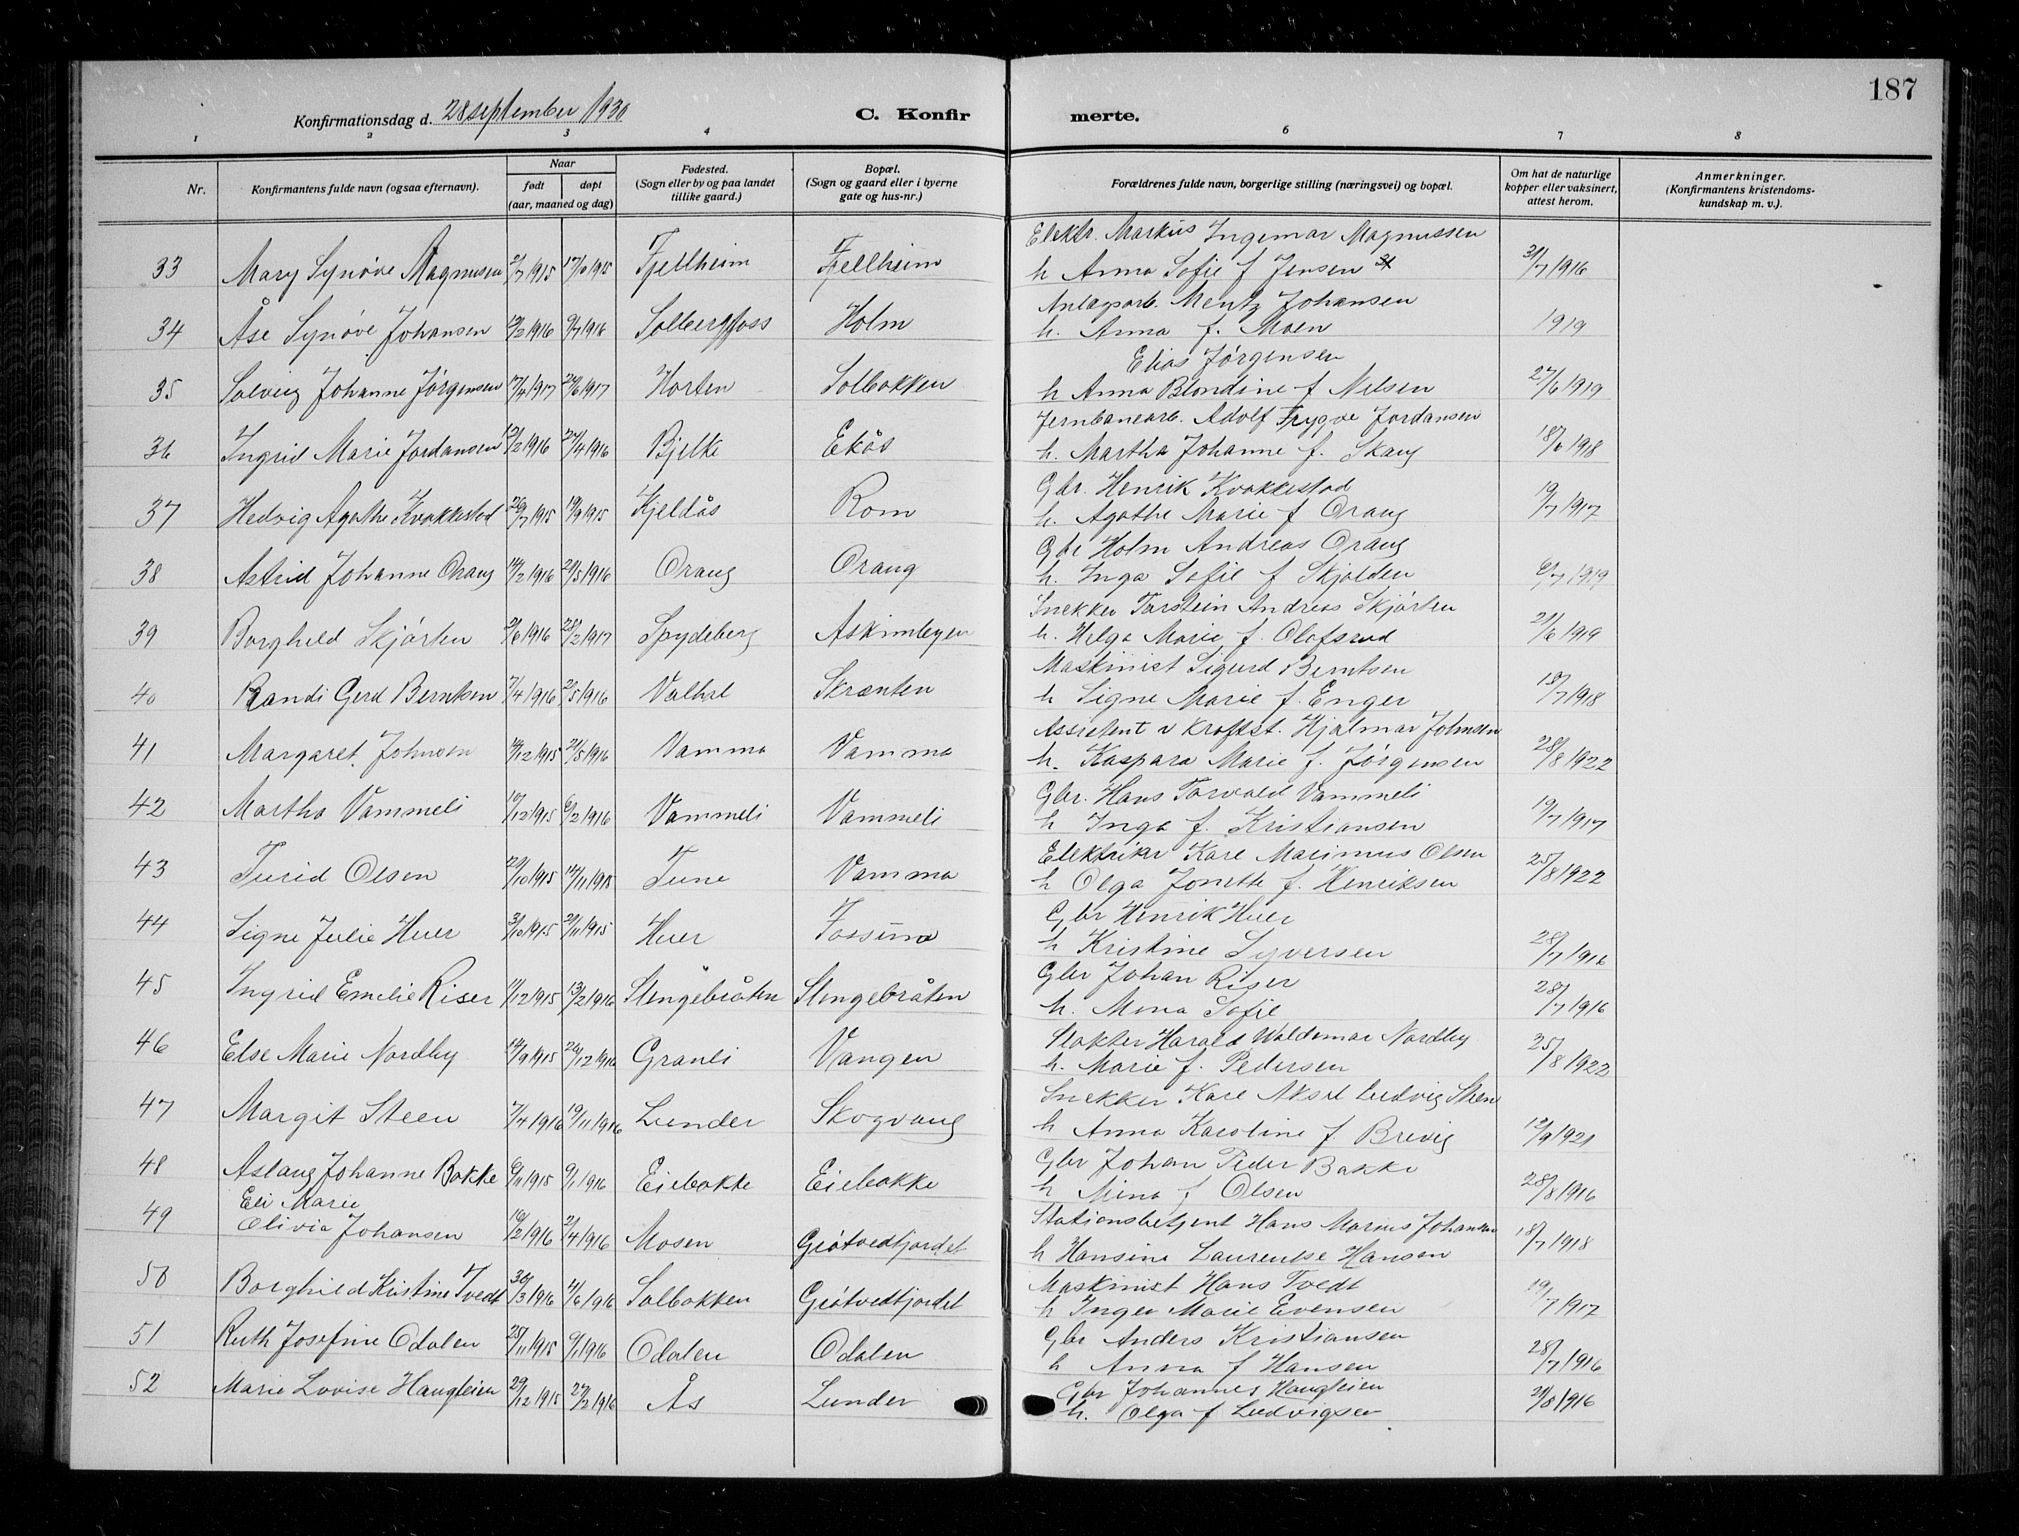 187
Konfirmationsdag d. 28 september 1930 C. Konfir merte.
1 2 3 4 6 7 8
Nr. Konfirmantens fulde navn (ogsaa efternavn). Naar født døpt (aar, maaned og dag) Fødested. (Sogn eller by og paa landet tillike gaard.) Bopæl. (Sogn og gaard eller i byerne gate og hus-nr.) Forældrenes fulde navn, borgerlige stilling (næringsvei) og bopæl. Om hat de naturlige kopper eller vaksinert, attest herom. Anmerkninger. (Konfirmantens kristendoms-kundskap m. v.).
Elektr. Markus Ingemar Magnussen
33 Mary Synøve Magnusen 2/7 1915 Fjellheim Fjellheim h Anna Sofie f Jensen 31/7 1916
Anlægsarb. Mentz Johansen
34 Åse Synøve Johansen Solbergfoss Holm h. Anna f. Moen 1919
Elias Jørgensen
35 Solveig Johanne Jørgensen 17/4 1917 24/6 1917 Horten Solbakken h Anna Blondine f Nilsen 27/6 1919
Jernbanearb. Adolf Trygve Jordansen
36 Ingrid Marie Jordansen 24/4 1916 Bjelke Ekås h. Martha Johanne f. Skaug 18/6 1918
Gbr. Henrik Kvakkestad
37 Hedvig Agathe Kvakkestad 26/7 1915 19/9 1915 Kjellås Rom h. Agathe Marie f Oraug 19/7 1917
Gbr Holm Andreas Oraug
38 Astrid Johanne Oraug 14/2 1916 21/5 1916 Oraug Oraug h. Inga Sofie f Skjolden 6/7 1919
Snekker Torstein Andreas Skjørten
39 Borghild Skjørten 2/6 1916 25/2 1917 Spydeberg Askimbyen h. Helga Marie f. Olafsrud 21/6 1919
Maskinist Sigurd Berntsen
40 Randi Gerd Berntsen 7/4 1916 2/5 1916 Skrenten h Signe Marie f. Enger 18/7 1918
Assistent v kraftst. Hjalmar Johnsen
41 Margaret Johnsen 21/5 1916 Vamma Vamma h. Kaspara Marie f. Jørgensen 28/8 1922
Gbr. Hans Torvald Vammeli
42 Martha Vammeli 10/12 1915 6/2 1916 Vammeli Vammeli h Inga f. Kristiansen 19/7 1917
Elektriker Kare Marimus Olsen
43 Turid Olsen 29/10 1915 14/11 1915 Tune Vamma h Olga Jonette f. Henriksen 25/8 1922
Gbr Henrik Huer
44 Signe Julie Huer 3/10 1915 21/11 1915 Huer Fossum h Kristine Syversen 28/7 1916
Gbr Johan Riser
45 Ingrid Emelie Riser 11/12 1915 13/2 1916 Slengebråten Slengebråten h. Mina Sofie 28/7 1916
Slakter Harald Waldemar Nordby
46 Else Marie Nordby 14/9 1915 26/12 1916 Granli Vangen h. Marie f. Pedersen 25/8 1922
Snekker Kare Aksel Ludvig Steen
47 Margit Steen 7/4 1916 19/11 1916 Lunder Skogvang h Anna Karoline f. Brevig 12/9 1921
Gbr Johan Peder Bakke
48 Aslaug Johanne Bakke 6/11 1915 9/1 1916 Eiebakke Eiebakke h Mina f Olsen 28/8 1916
Eli Marie Stationsbetjent Hans Marius Johansen
49 Olivia Johansen 16/2 1916 2/4 1916 Mosen Grøtvedtjordet h Hansine Laurentse Hansen 18/7 1918
Maskinist Hans Tvedt
50 Borghild Kristine Tvedt 30/3 1916 11/6 1916 Solbakken Grøtvedtjordet h Inger Marie Evensen 19/7 1917
Gbr Anders Kristiansen
51 Ruth Josefine Odalen 25/11 1915 9/1 1916 Odalen Odalen h Anna f Hansen 28/7 1916
Gbr Johannes Haugleien
52 Marie Lovise Haugleien 29/12 1915 27/2 1916 Ås Lunder h. Olga f Ludvigsen 21/8 1916